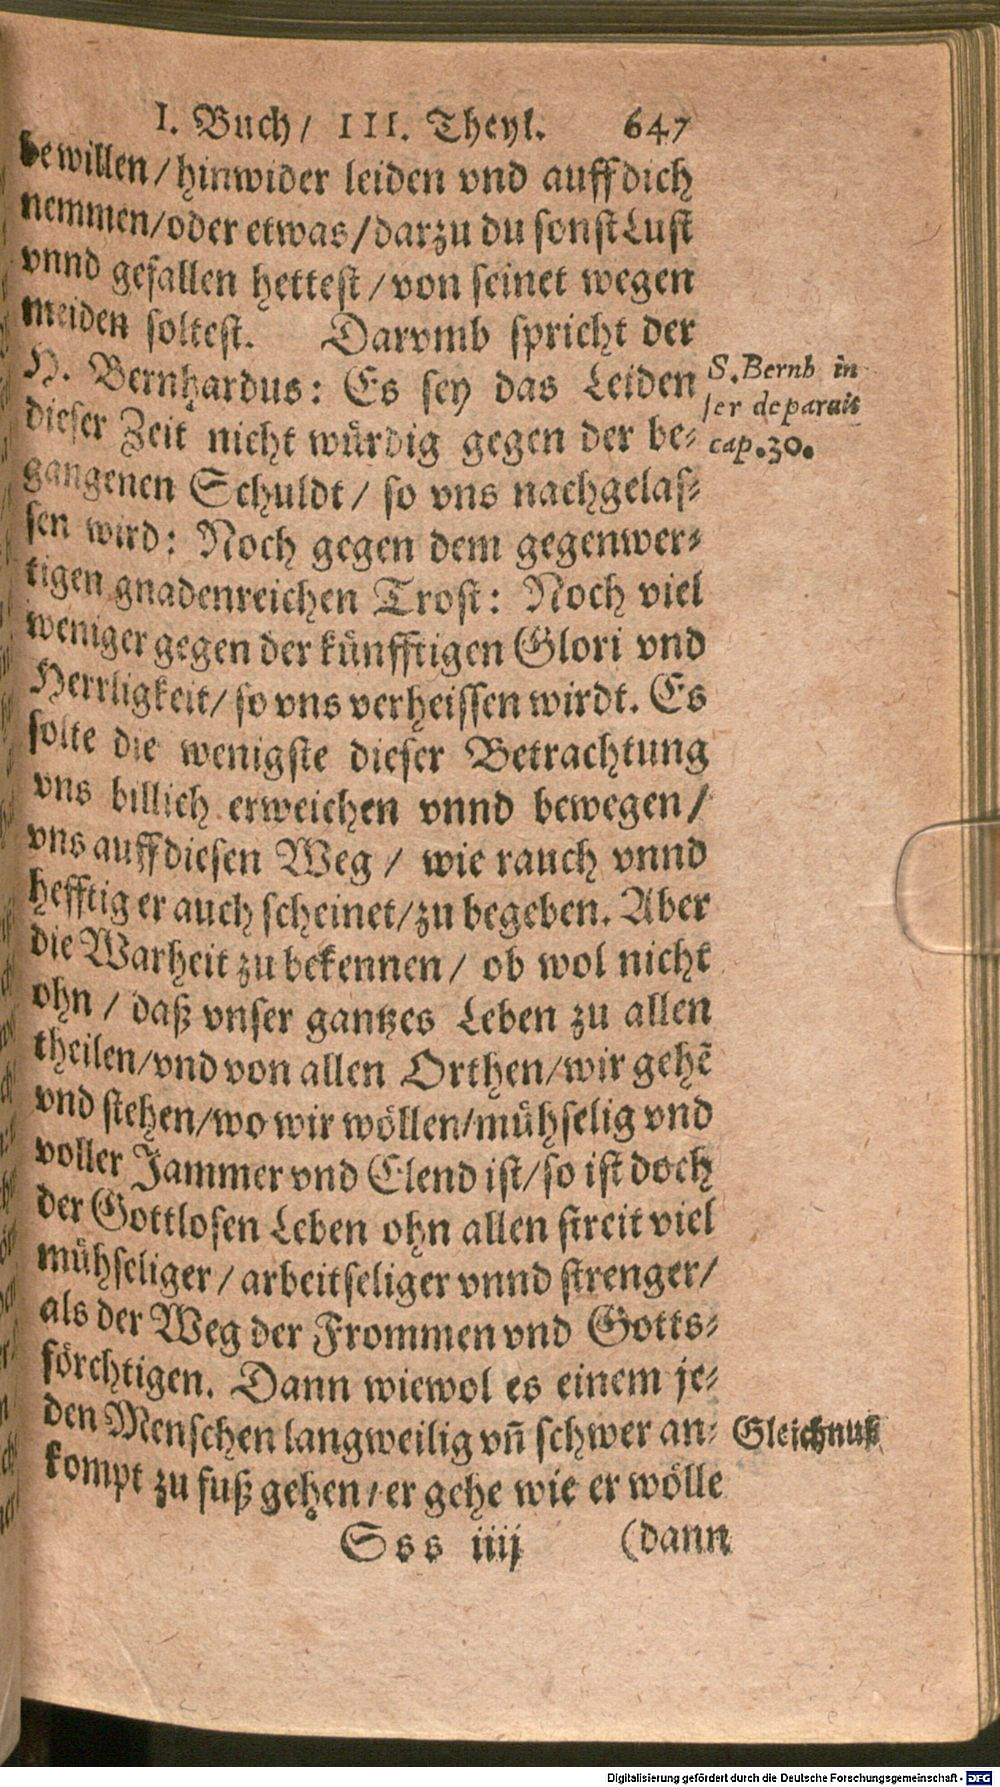 I. Buch / III. Theyl. 647
bewillen / hinwider leiden vnd auff dich
nemmen / oder etwas / darzu du sonst Lust
vnnd gefallen hettest / von seinet wegen
meiden soltest. Darvmb spricht der
H. Bernhardus: Es sey das Leiden
S. Bernh in
dieser Zeit nicht würdig gegen der be-
ser de parait
cap. 30.
gangenen Schuldt / so vns nachgelas-
sen wird: Noch gegen dem gegenwer-
tigen gnadenreichen Trost: Noch viel
weniger gegen der künfftigen Glori vnd
Herrligkeit / so vns verheissen wirdt. Es
solte die wenigste dieser Betrachtung
vns billich erweichen vnnd bewegen /
vns auff diesen Weg / wie rauch vnnd
hefftig er auch scheinet / zu begeben. Aber
die Warheit zu bekennen / ob wol nicht
ohn / daß vnser gantzes Leben zu allen
theilen / vnd von allen Orthen / wir gehẽ
vnd stehen / wo wir wöllen / mühselig vnd
voller Jammer vnd Elend ist / so ist doch
der Gottlosen Leben ohn allen streit viel
mühseliger / arbeitseliger vnnd strenger /
als der Weg der Frommen vnd Gotts-
förchtigen. Dann wiewol es einem je-
den Menschen langweilig vñ schwer an-
Gleichnuß
kompt zu fuß gehen / er gehe wie er wölle
Sss iiij (dann
Digitalisierung gefördert durch die Deutsche Forschungsgemeinschaft - DFG